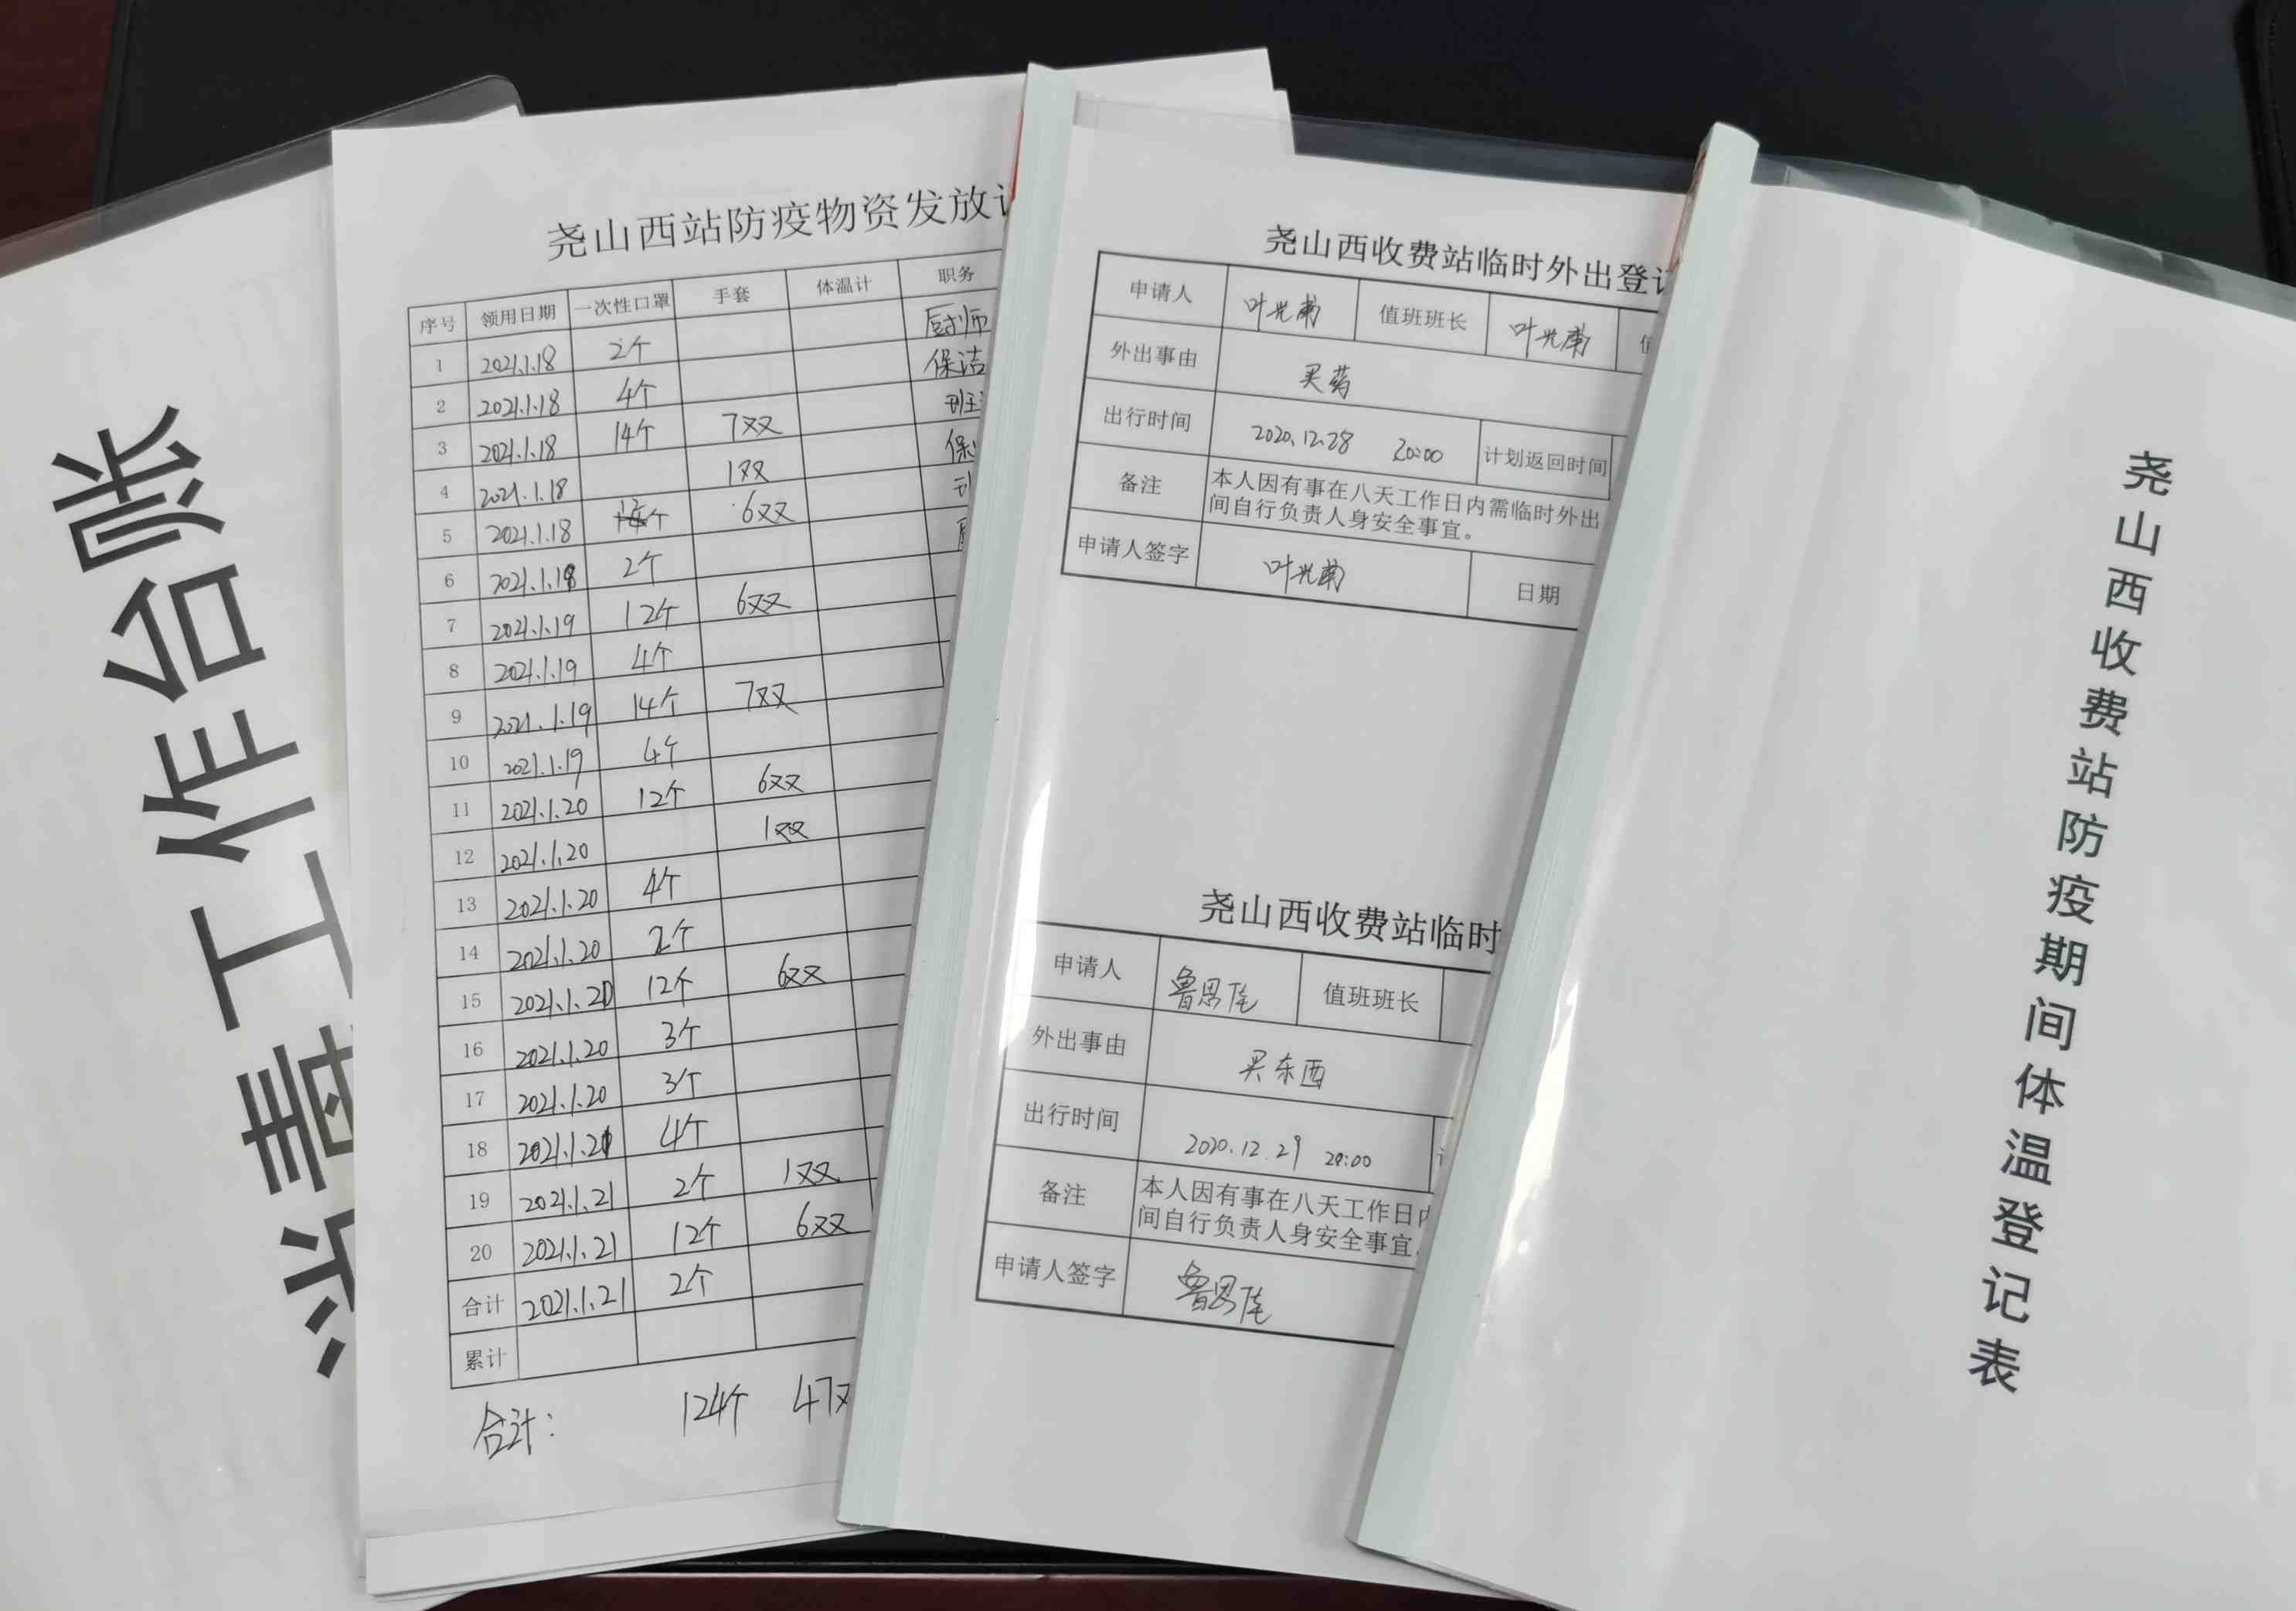 工作台账
尧山西站防疫物资发放
序号 领用日期 一次性口罩 手套 体温计 职务
1 2021.1.18 2个 厨师
2 2021.1.18 4个 保洁
3 2021.1.18 14个 7双
4 2021.1.18 1双 保
5 2021.1.18 6双
6 2021.1.18 2个
7 2021.1.19 12个 6双
8 2021.1.19 4个
9 2021.1.19 14个 7双
10 2021.1.19 4个
11 2021.1.20 12个 6双
12 2021.1.20 1双
13 2021.1.20 4个
14 2021.1.20 2个
15 12个 6双
16 2021.1.20 3个
17 2021.1.20 3个
18 4个
19 2021.1.21 2个 1双
20 2021.1.21 12个 6双
合计 2021.1.21 2个
累计
合计： 124个 47双
尧山西收费站临时外出登
申请人 值班班长
外出事由 买药
出行时间 2020.12.28 20:00 计划返回时间
备注 本人因有事在八天工作日内需临时外出
间自行负责人身安全事宜。
申请人签字 日期
尧山西收费站临时
申请人 值班班长
外出事由 买东西
出行时间 2020.12.29 20:00
备注 本人因有事在八天工作日
间自行负责人身安全事宜
申请人签字
尧山西收费站防疫期间体温登记表